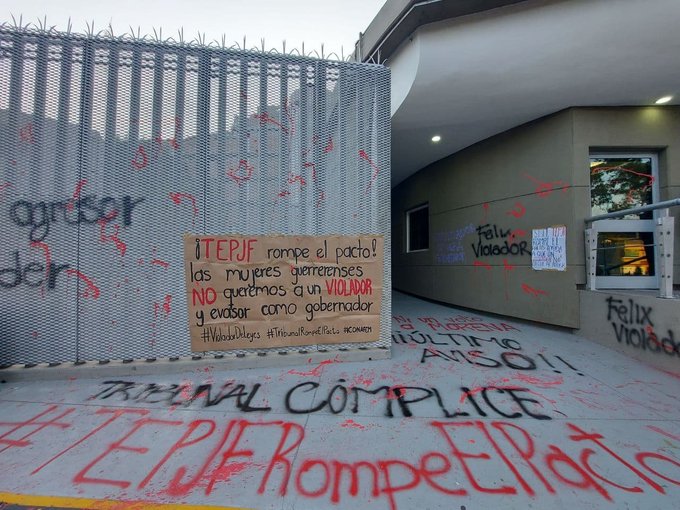 agresor
¡TEPJF rompe el pacto!
las mujeres guerrerenses
NO queremos a un VIOLADOR
y evasor como gobernador
#VioladorDeLeyes #TribunalRompeElPacto #CONAFEM
Felix
Violador
Felix
Violador
ULTIMO
AVISO!!
TRIBUNAL CÓMPLICE
#TEPJFRompeElPacto